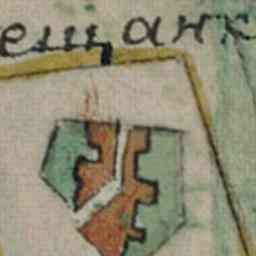 ещанк